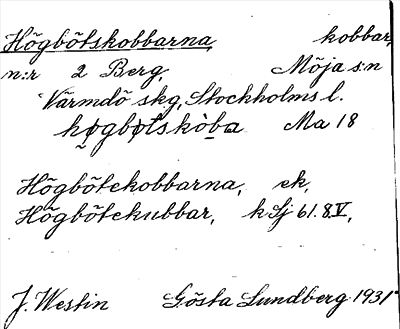 Högbötskobbarna, kobbar,
n:r 2 Berg, Möja s:n
Värmdö skg, Stockholms l.
Ma 18
Högbötekobbarna, ek,
Högbötekubbar, k Sj 61.8.V,
J. Westin Gösta Lundberg 1931